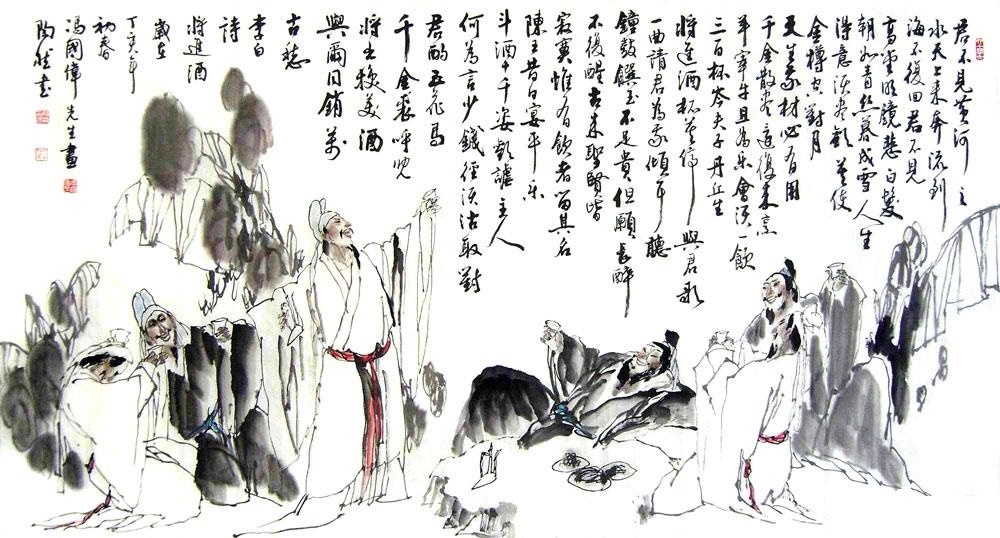 君不見黄河之
水天上来奔流到
海不復回君不見
高堂明鏡悲白髮
朝如青丝暮成雪人生
得意须尽歡莫使
金樽空對月
天生我材必有用
千金散尽還復来烹
羊宰牛且為樂會须一飲
三百杯岑夫子丹丘生
將進酒杯莫停與君歌
一曲請君為我傾耳聽
鐘鼓饌玉不足貴但願長醉
不復醒古来聖賢皆
寂寞惟有飲者留其名
陳王昔日宴平樂
斗酒十千姿歡謔主人
何為言少錢徑须沽取對
君酌五花馬
千金裘呼兒
將出換美酒
與爾同銷萬
古愁
李白
詩
將進酒
歲在
丁亥年
初春
馮國偉先生畫
陶然書